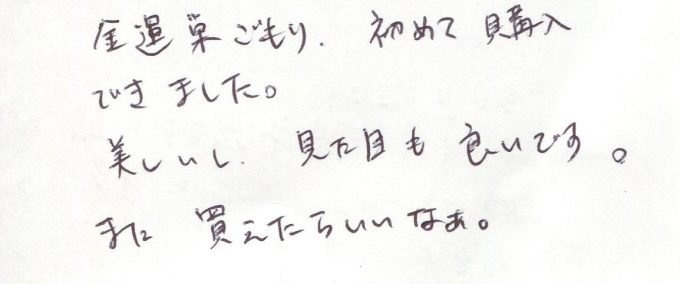 金運巣ごもり、初めて購入
できました。
美しいし、見た目も良いです。
また買えたらいいなぁ。